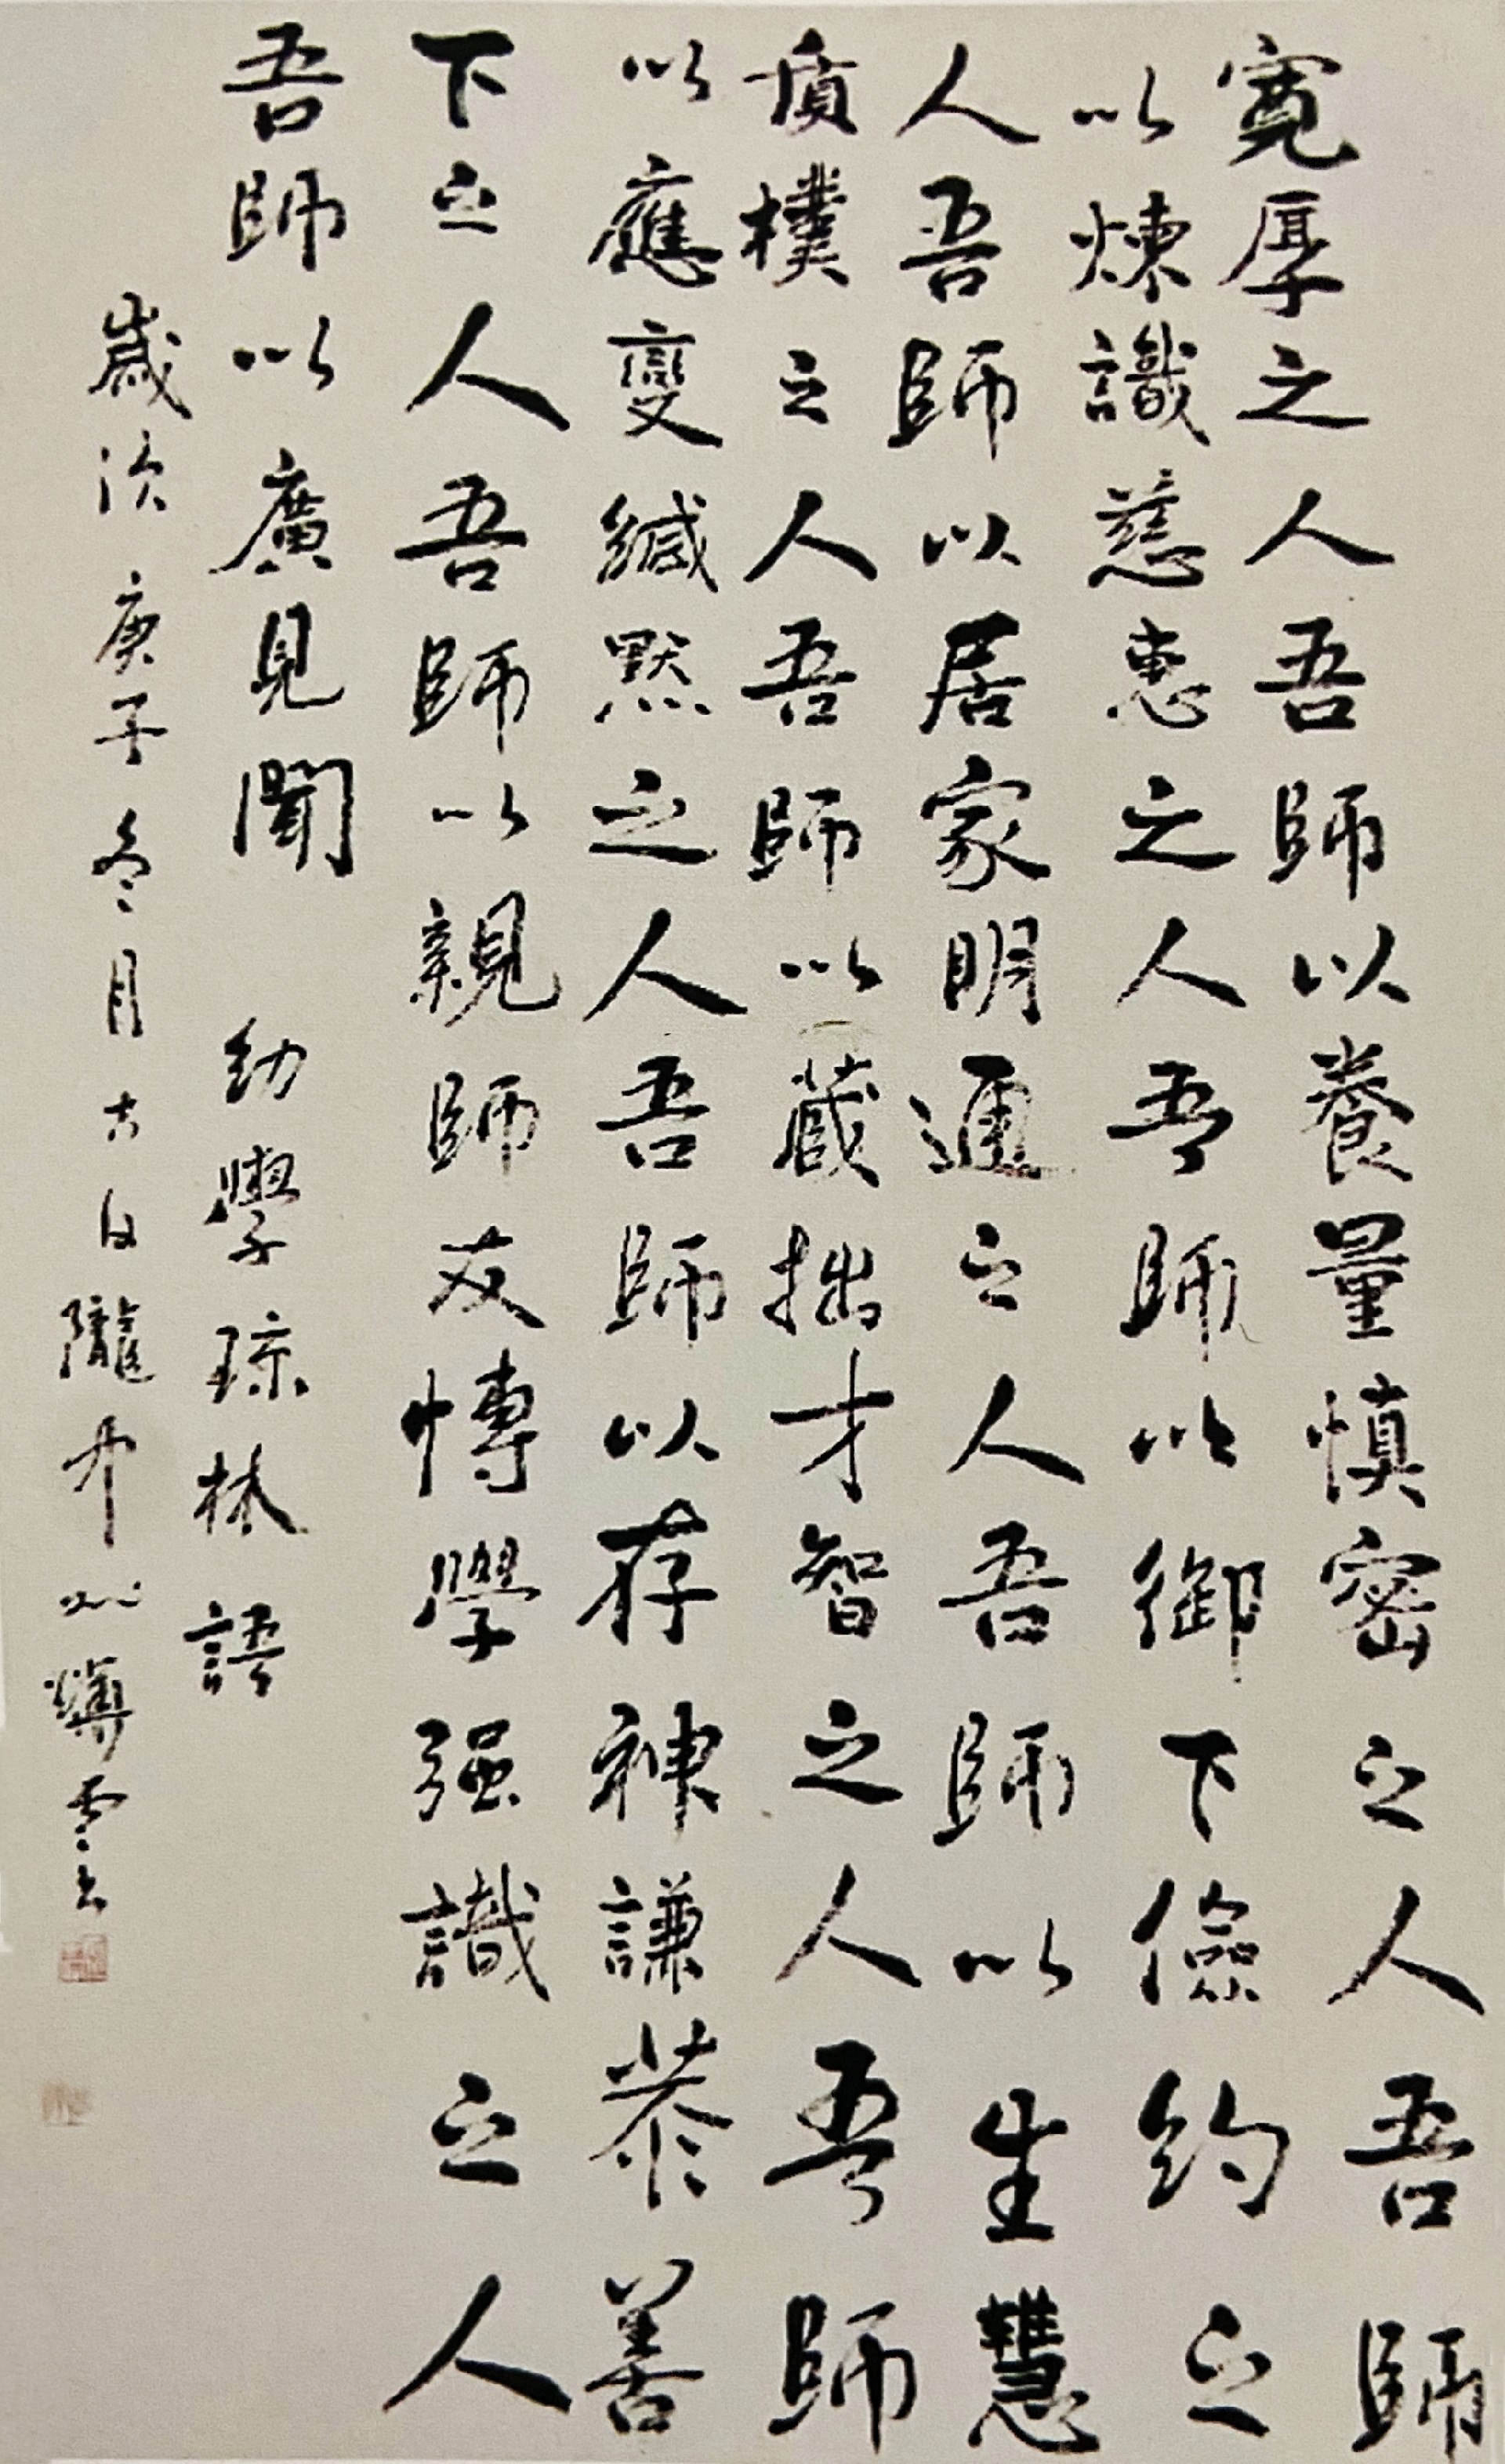 寬厚之人吾師以養量慎密之人吾師
以煉識慈惠之人吾師以御下儉約之
人吾師以居家明通之人吾師以生慧
質樸之人吾師以藏拙才智之人吾師
以應變緘默之人吾師以存神謙恭善
下之人吾師以親師友博學强識之人
吾師以廣見聞 幼學瓊林語
歲次庚子冬月古日隴中